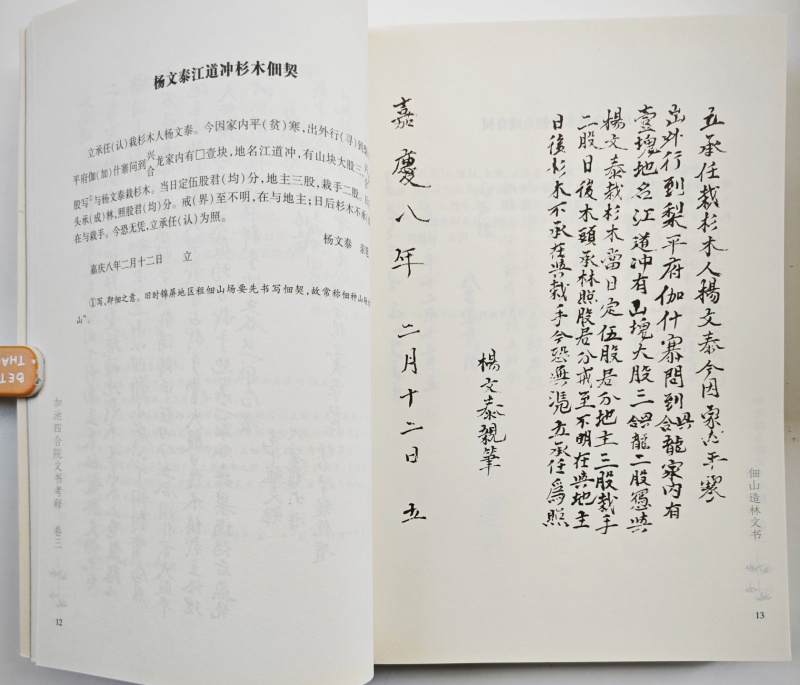 杨文泰江道冲杉木佃契
立承任(认)栽杉木人杨文泰。今因家内平(贫)寒,出外行(寻)到
平府伽(加)什寨问到兴合龙家内有□壹块,地名江道冲,有山块大股三
股写①与杨文泰栽杉木。当日定伍股君(均)分,地主三股,栽手二股。
头承(成)林,照股君(均)分。戒(界)至不明,在与地主;日后杉木不承
在与栽手。今恐无凭,立承任(认)为照。
杨文泰
嘉庆八年二月十二日 立
①写,即佃之意。旧时锦屏地区租佃山场要先书写佃契,故常称佃种山
山”。
加池四合院文书考释 卷三
12
立承任栽杉木人楊文泰今因家内平寒
出外行到梨平府伽什寨問到興合龍家内有
壹塊地名江道冲有山塊大股三興合龍二股寫與
楊文泰栽杉木當日定伍股君分地主三股栽手
二股日後木頭承林照股君分戒至不明在與地主
日後杉木不承在與栽手今恐無憑立承任爲照
楊文泰親筆
嘉慶八年 二月十二日 立
佃山造林文书
13